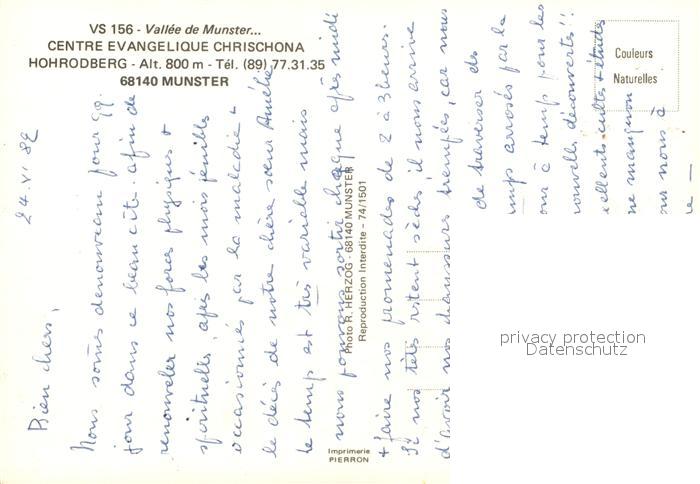 VS 156 - Vallée de Munster...
CENTRE EVANGELIQUE CHRISCHONA
HOHRODBERG - Alt. 800 m - Tél. (89) 77.31.35
68140 MUNSTER
Couleurs
Naturelles
Photo R. HERZOG - 68140 MUNSTER
Reproduction Interdite - 74/1501
Imprimerie
PIERRON
24.VI.82
Bien chers,
Nous somes denouveau pour qq.
jour dans ce beau cite. afin de
renouveler nos forces physiques +
spirituelles, après les mois pénibles
occasionnes par la maladie +
le décès de notre chère sœur Amélie
le temps est très variable mais
nous pouvons sortir chaque après midi
+ faire nos promenades de 2 à 3 heures.
Si nos têtes restent sèches il nous arrive
d'avoir nos chaussures trempées, car nous
de traverser des
mps arrosés par la
à temps pour les
nouvelle découvertes!!
ellents cultes + études
ne manquon
nous à
privacy protection
Datenschutz